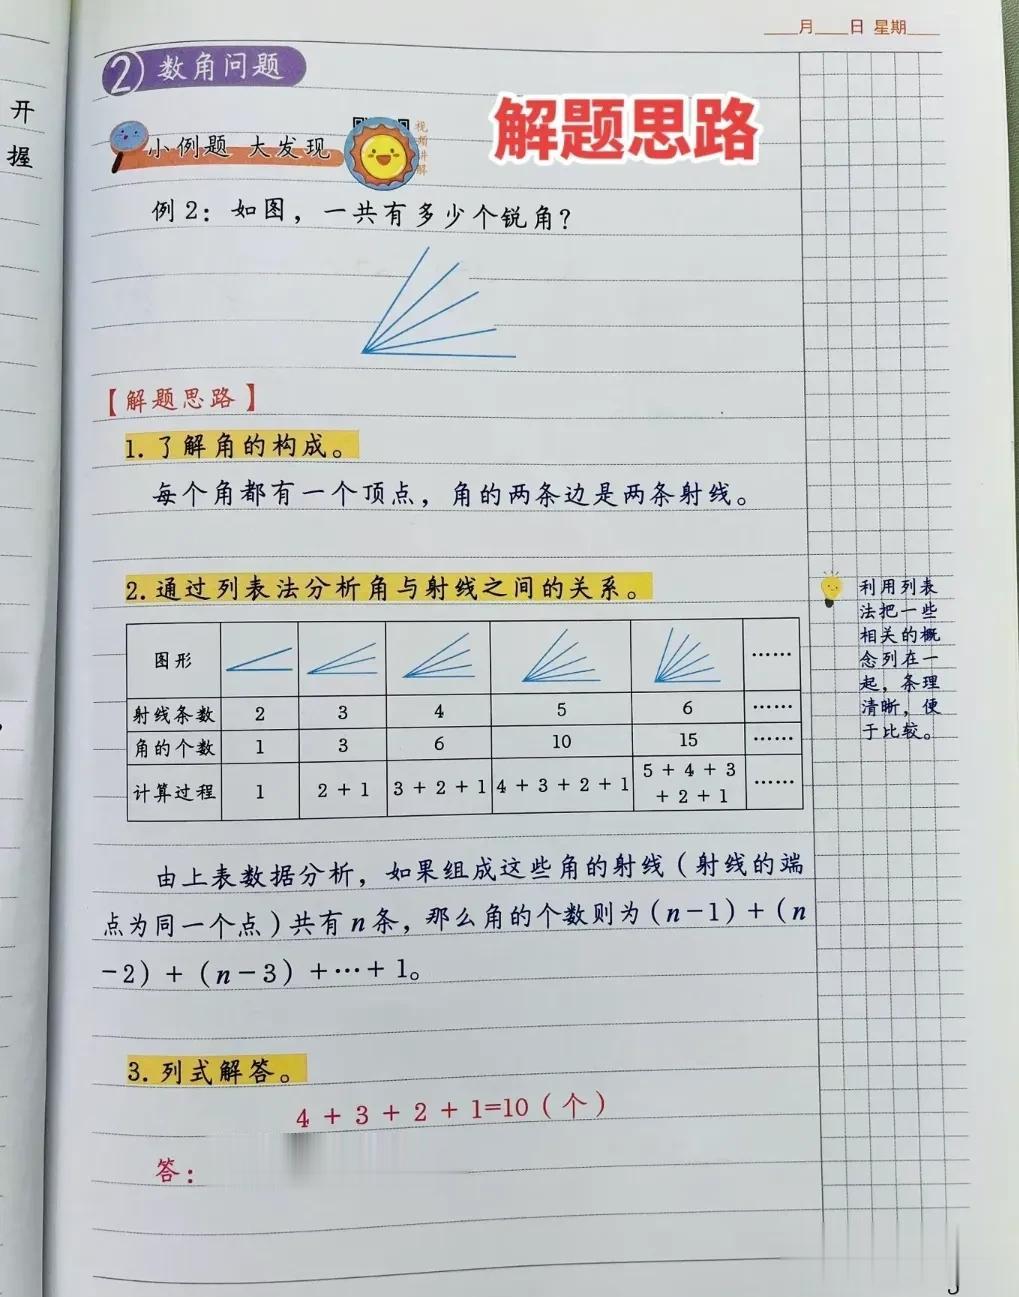 月 日 星期
② 数角问题
解题思路
小例题 大发现
视频讲解
例2：如图，一共有多少个锐角？
【解题思路】
1.了解角的构成。
每个角都有一个顶点，角的两条边是两条射线。
2.通过列表法分析角与射线之间的关系。
图形 ……
射线条数 2 3 4 5 6 ……
角的个数 1 3 6 10 15 ……
计算过程 1 2＋1 3＋2＋1 4＋3＋2＋1 5＋4＋3＋2＋1 ……
利用列表
法把一些
相关的概
念列在一
起，条理
清晰，便
于比较。
由上表数据分析，如果组成这些角的射线（射线的端
点为同一个点）共有n条，那么角的个数则为（n－1）＋（n
－2）＋（n－3）＋…＋1。
3.列式解答。
4＋3＋2＋1=10（个）
答：
开
握